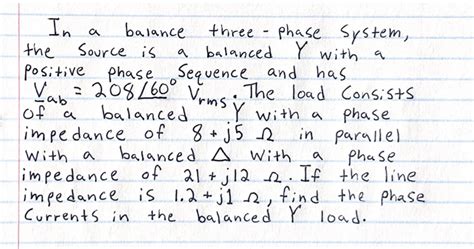 In a balance three-phase system,
the source is a balanced Y with a
positive phase sequence and has
V̲ab = 208∠60° Vrms. The load consists
of a balanced Y with a phase
impedance of 8 + j5 Ω in parallel
with a balanced Δ with a phase
impedance of 21 + j12 Ω. If the line
impedance is 1.2 + j1 Ω, find the phase
currents in the balanced Y load.